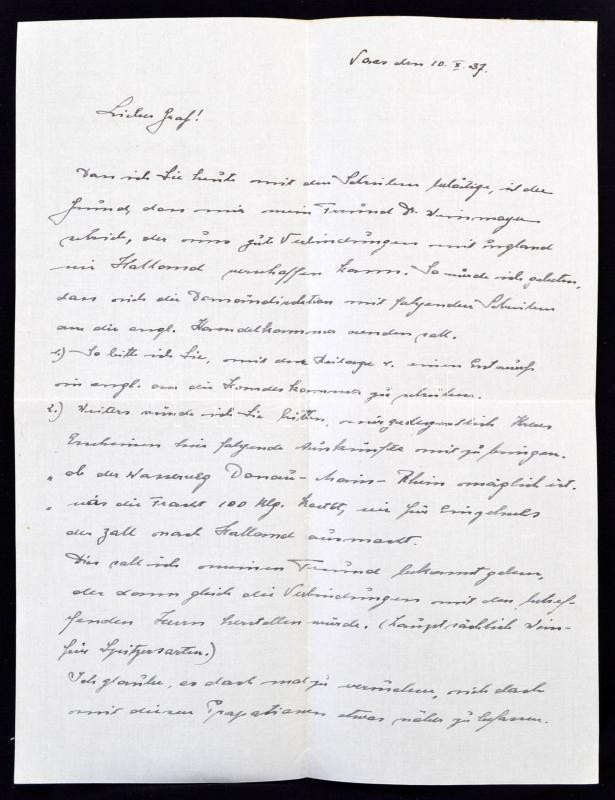 den 10. X. 37.
Lieber Graf!
Dass ich Sie heute mit dem Schreiben belästige, ist der
Grund, dass mir mein Freund Dr. Weinmayer
schrieb, der uns gute Verbindungen mit England
wie Holland verschaffen kann. So würde ich gebeten,
dass sich die Domändirektion mit folgenden Schreiben
an die engl. Handelkammer wenden soll.
1.) So bitte ich Sie, mit der Beilage einen Entwurf
in engl. an die Handelskammer zu schreiben.
2.) Weiters würde ich Sie bitten, Ihres
Erscheinen hier folgende Auskünfte mit zu bringen.
" ob der Wasserweg Donau-Main-Rhein möglich ist.
" was die Fracht 100 Klg. kostet, wie für Eingehendes
der Zoll nach Holland ausmacht.
Dies soll ich meinem Freund bekannt geben,
der dann gleich die Verbindungen mit den betref-
fenden Herrn herstellen würde. (Hauptsächlich Wein-
für Spitzersorten.)
Ich glaube, es doch mal zu versuchen, sich doch
mit diesen etwas näher zu befassen.